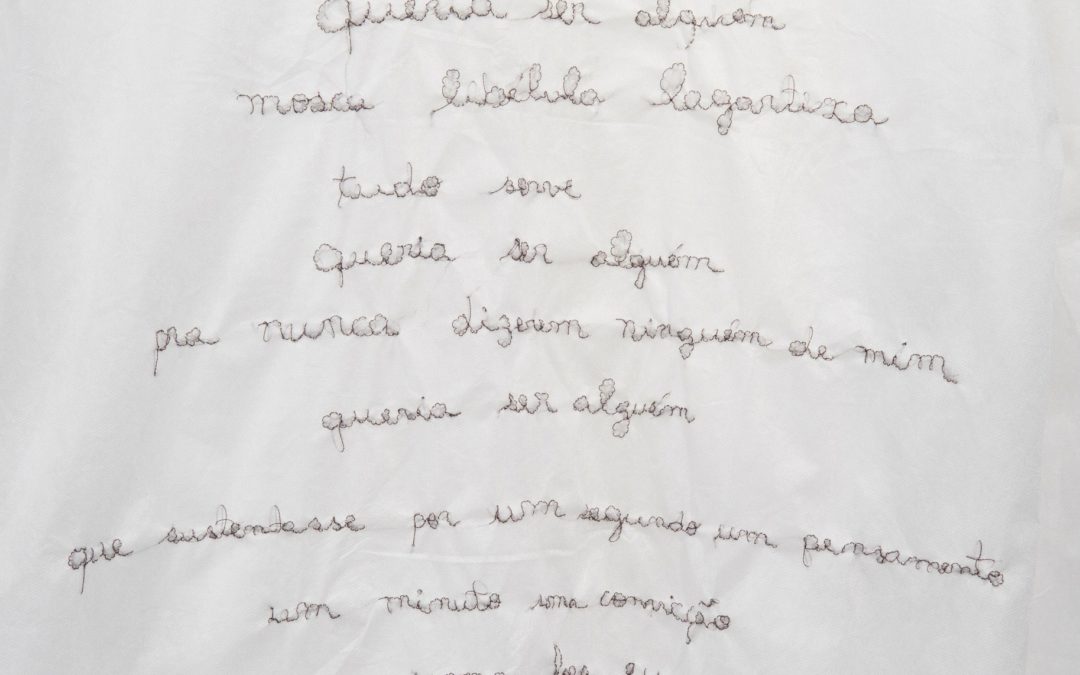 queria ser alguém
mosca libélula lagartixa
tudo serve
queria ser alguém
pra nunca dizerem ninguém de mim
queria ser alguém
que sustentasse por um segundo um pensamento
um minuto uma convicção